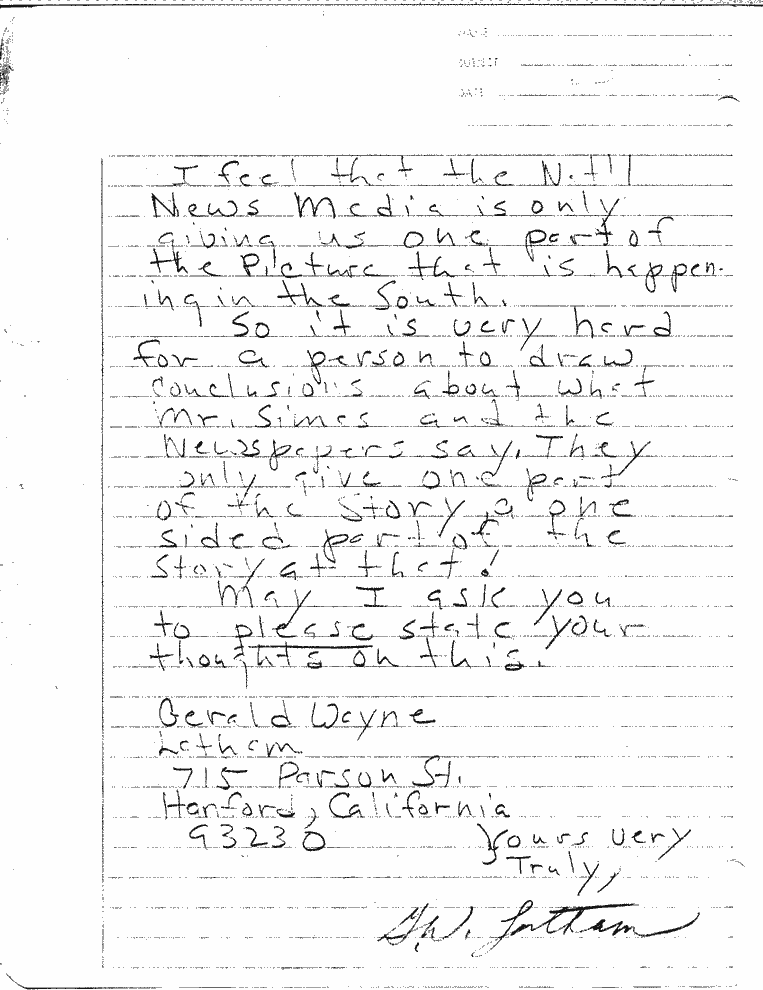 I feel that the Nat'l
News Media is only
giving us one part of
the Picture that is happen-
ing in the South.
So it is very hard
for a person to draw
conclusions about what
Mr. Simes and the
Newspapers say. They
only give one part
of the Story, a one
sided part of the
story at that!
May I ask you
to please state your
thoughts on this.
Gerald Wayne
Latham
715 Parson St.
Hanford, California
93230
Yours very
Truly,
G.W. Latham